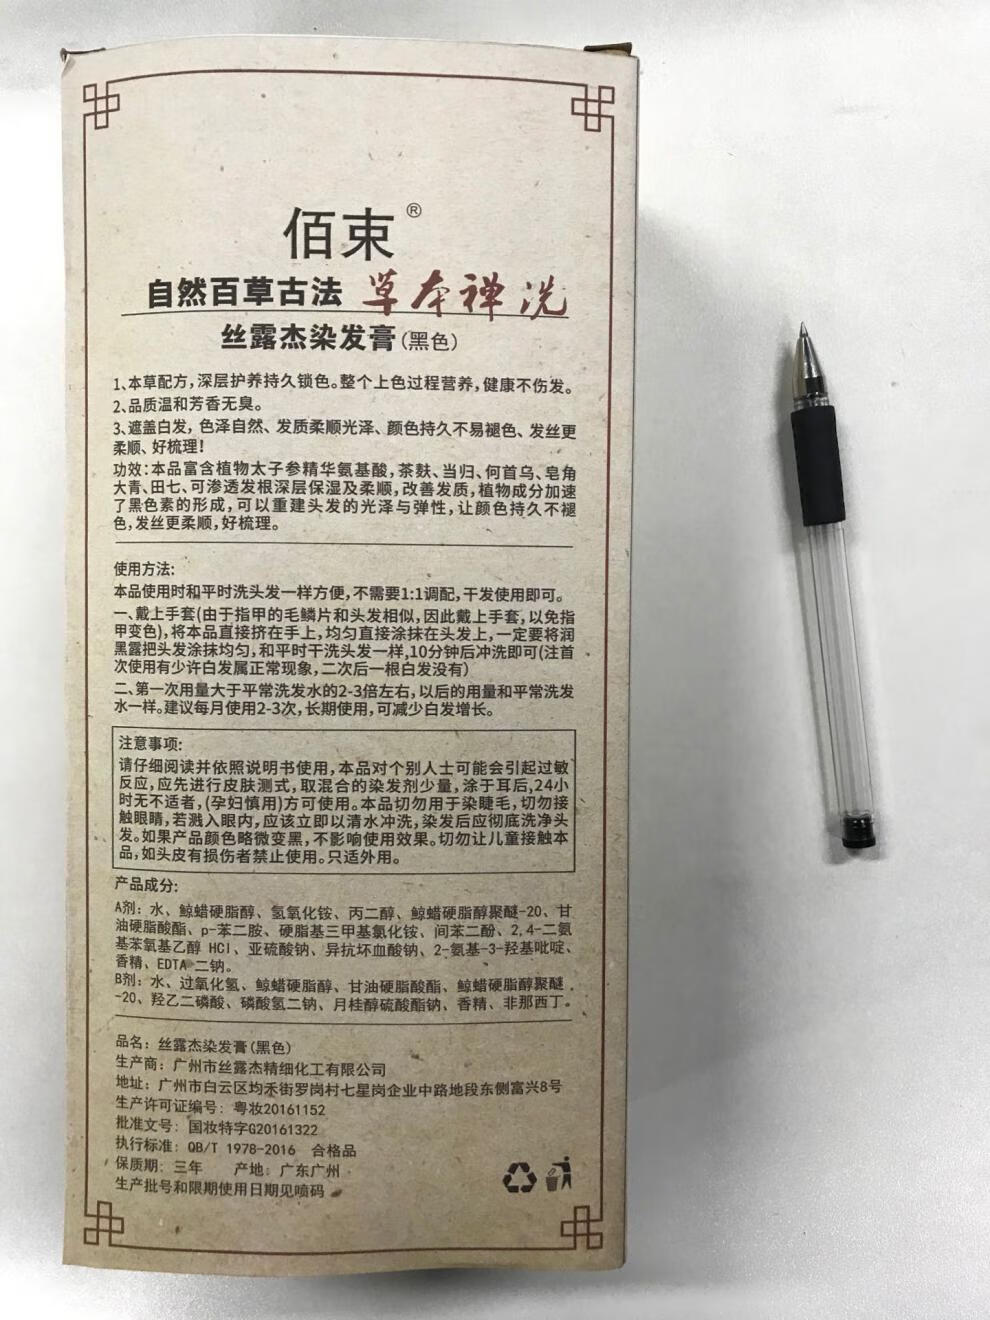 佰束®
自然百草古法 草本禅洗
丝露杰染发膏(黑色)
1、本草配方,深层护养持久锁色。整个上色过程营养,健康不伤发。
2、品质温和芳香无臭。
3、遮盖白发,色泽自然、发质柔顺光泽、颜色持久不易褪色、发丝更
柔顺、好梳理!
功效:本品富含植物太子参精华氨基酸,茶麸、当归、何首乌、皂角
大青、田七、可渗透发根深层保湿及柔顺,改善发质,植物成分加速
了黑色素的形成,可以重建头发的光泽与弹性,让颜色持久不褪
色,发丝更柔顺,好梳理。
使用方法:
本品使用时和平时洗头发一样方便,不需要1:1调配,干发使用即可。
一、戴上手套(由于指甲的毛鳞片和头发相似,因此戴上手套,以免指
甲变色),将本品直接挤在手上,均匀直接涂抹在头发上,一定要将润
黑露把头发涂抹均匀,和平时干洗头发一样,10分钟后冲洗即可(注首
次使用有少许白发属正常现象,二次后一根白发没有)
二、第一次用量大于平常洗发水的2-3倍左右,以后的用量和平常洗发
水一样。建议每月使用2-3次,长期使用,可减少白发增长。
注意事项:
请仔细阅读并依照说明书使用,本品对个别人士可能会引起过敏
反应,应先进行皮肤测式,取混合的染发剂少量,涂于耳后,24小
时无不适者,(孕妇慎用)方可使用。本品切勿用于染睫毛,切勿接
触眼睛,若溅入眼内,应该立即以清水冲洗,染发后应彻底洗净头
发。如果产品颜色略微变黑,不影响使用效果。切勿让儿童接触本
品,如头皮有损伤者禁止使用。只适外用。
产品成分:
A剂: 水、鲸蜡硬脂醇、氢氧化铵、丙二醇、鲸蜡硬脂醇聚醚-20、甘
油硬脂酸酯、p-苯二胺、硬脂基三甲基氯化铵、间苯二酚、2,4-二氨
基苯氧基乙醇 HCl、亚硫酸钠、异抗坏血酸钠、2-氨基-3-羟基吡啶、
香精、EDTA 二钠。
B剂: 水、过氧化氢、鲸蜡硬脂醇、甘油硬脂酸酯、鲸蜡硬脂醇聚醚
-20、羟乙二磷酸、磷酸氢二钠、月桂醇硫酸酯钠、香精、非那西丁。
品名: 丝露杰染发膏(黑色)
生产商: 广州市丝露杰精细化工有限公司
地址: 广州市白云区均禾街罗岗村七星岗企业中路地段东侧富兴8号
生产许可证编号: 粤妆20161152
批准文号: 国妆特字G20161322
执行标准: QB/T 1978-2016 合格品
保质期: 三年 产地: 广东广州
生产批号和限期使用日期见喷码